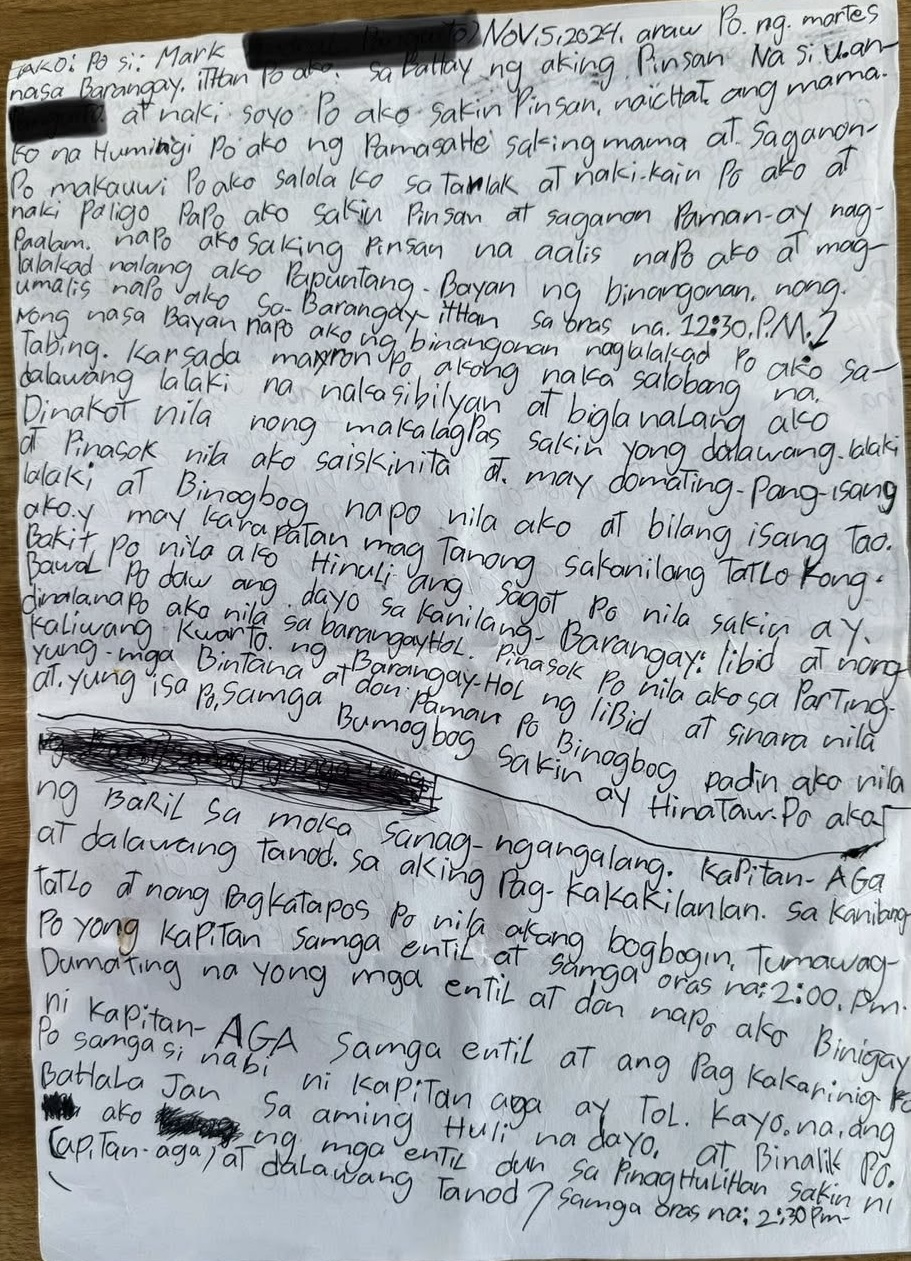 ako: Po si: Mark NOV.5,2024. araw Po. ng. martes
nasa Barangay. itHan Po ako. sa Bahay ng aking Pinsan Na si
at naki soyo Po ako sakin Pinsan, naichat ang mama.
ko na Humingi Po ako ng Pamasahe saking mama at saganon-
Po makauwi Po ako salola ko sa Tarlak at naki-kain Po ako at
naki Paligo PaPo ako sakin Pinsan at saganon Paman-ay nag-
Paalam. naPo ako saking Pinsan na aalis naPo ako at mag-
lalakad nalang ako Papuntang-Bayan ng binangonan. nong.
umalis naPo ako sa-Barangay-itHan sa oras na. 12:30.P.M.
Nong nasa Bayan napo ako ng binangonan naglalakad Po ako sa-
Tabing. Karsada mayron Po akong naka salobong na.
dalawang lalaki na nakasibilyan at bigla nalang ako
Dinakot nila nong makalagPas sakin yong dalawang.lalaki
at Pinasok nila ako saiskinita at. may domating-Pang-isang
lalaki at Binogbog napo nila ako at bilang isang Tao.
ako.y may karapatan mag Tanong sakanilang TaTLo kong.
Bakit Po nila ako Hinuli ang sagot Po nila sakin ay.
Bawal Po daw ang dayo sa kanilang-Barangay: libid at nong
dinalanaPo ako nila sa barangayHol. Pinasok Po nila ako sa Parting-
kaliwang kwarto. ng Barangay-HoL ng liBid at sinara nila
yung-mga Bintana at don. Paman Po Binogbog padin ako nila
at.yung isa Po,samga Bumogbog sakin ay Hinataw.Po ako
ng BaRiL sa moka sanag-ngangalang. KaPitan-AGa
at dalawang Tanod. sa aking Pag-kakakilanlan. sa kanilang
TaTLo at nong Pagkatapos Po nila akong bogbogin, Tumawag-
Po yong KaPiTan samga entiL at samga oras na: 2:00.Pm.
Dumating na yong mga entiL at don napo ako Binigay
ni KaPitan-AGA samga entil at ang Pag kakarinig ko
Po samga si nabi ni KaPiTan aga ay ToL. Kayo.na.ang
BaHala Jan sa aming Huli na dayo. at Binalik Po.
ako ng mga entiL dun sa PinagHuliHan sakin ni
(aPiTan-aga) at daLawang Tanod samga oras na: 2:30Pm-